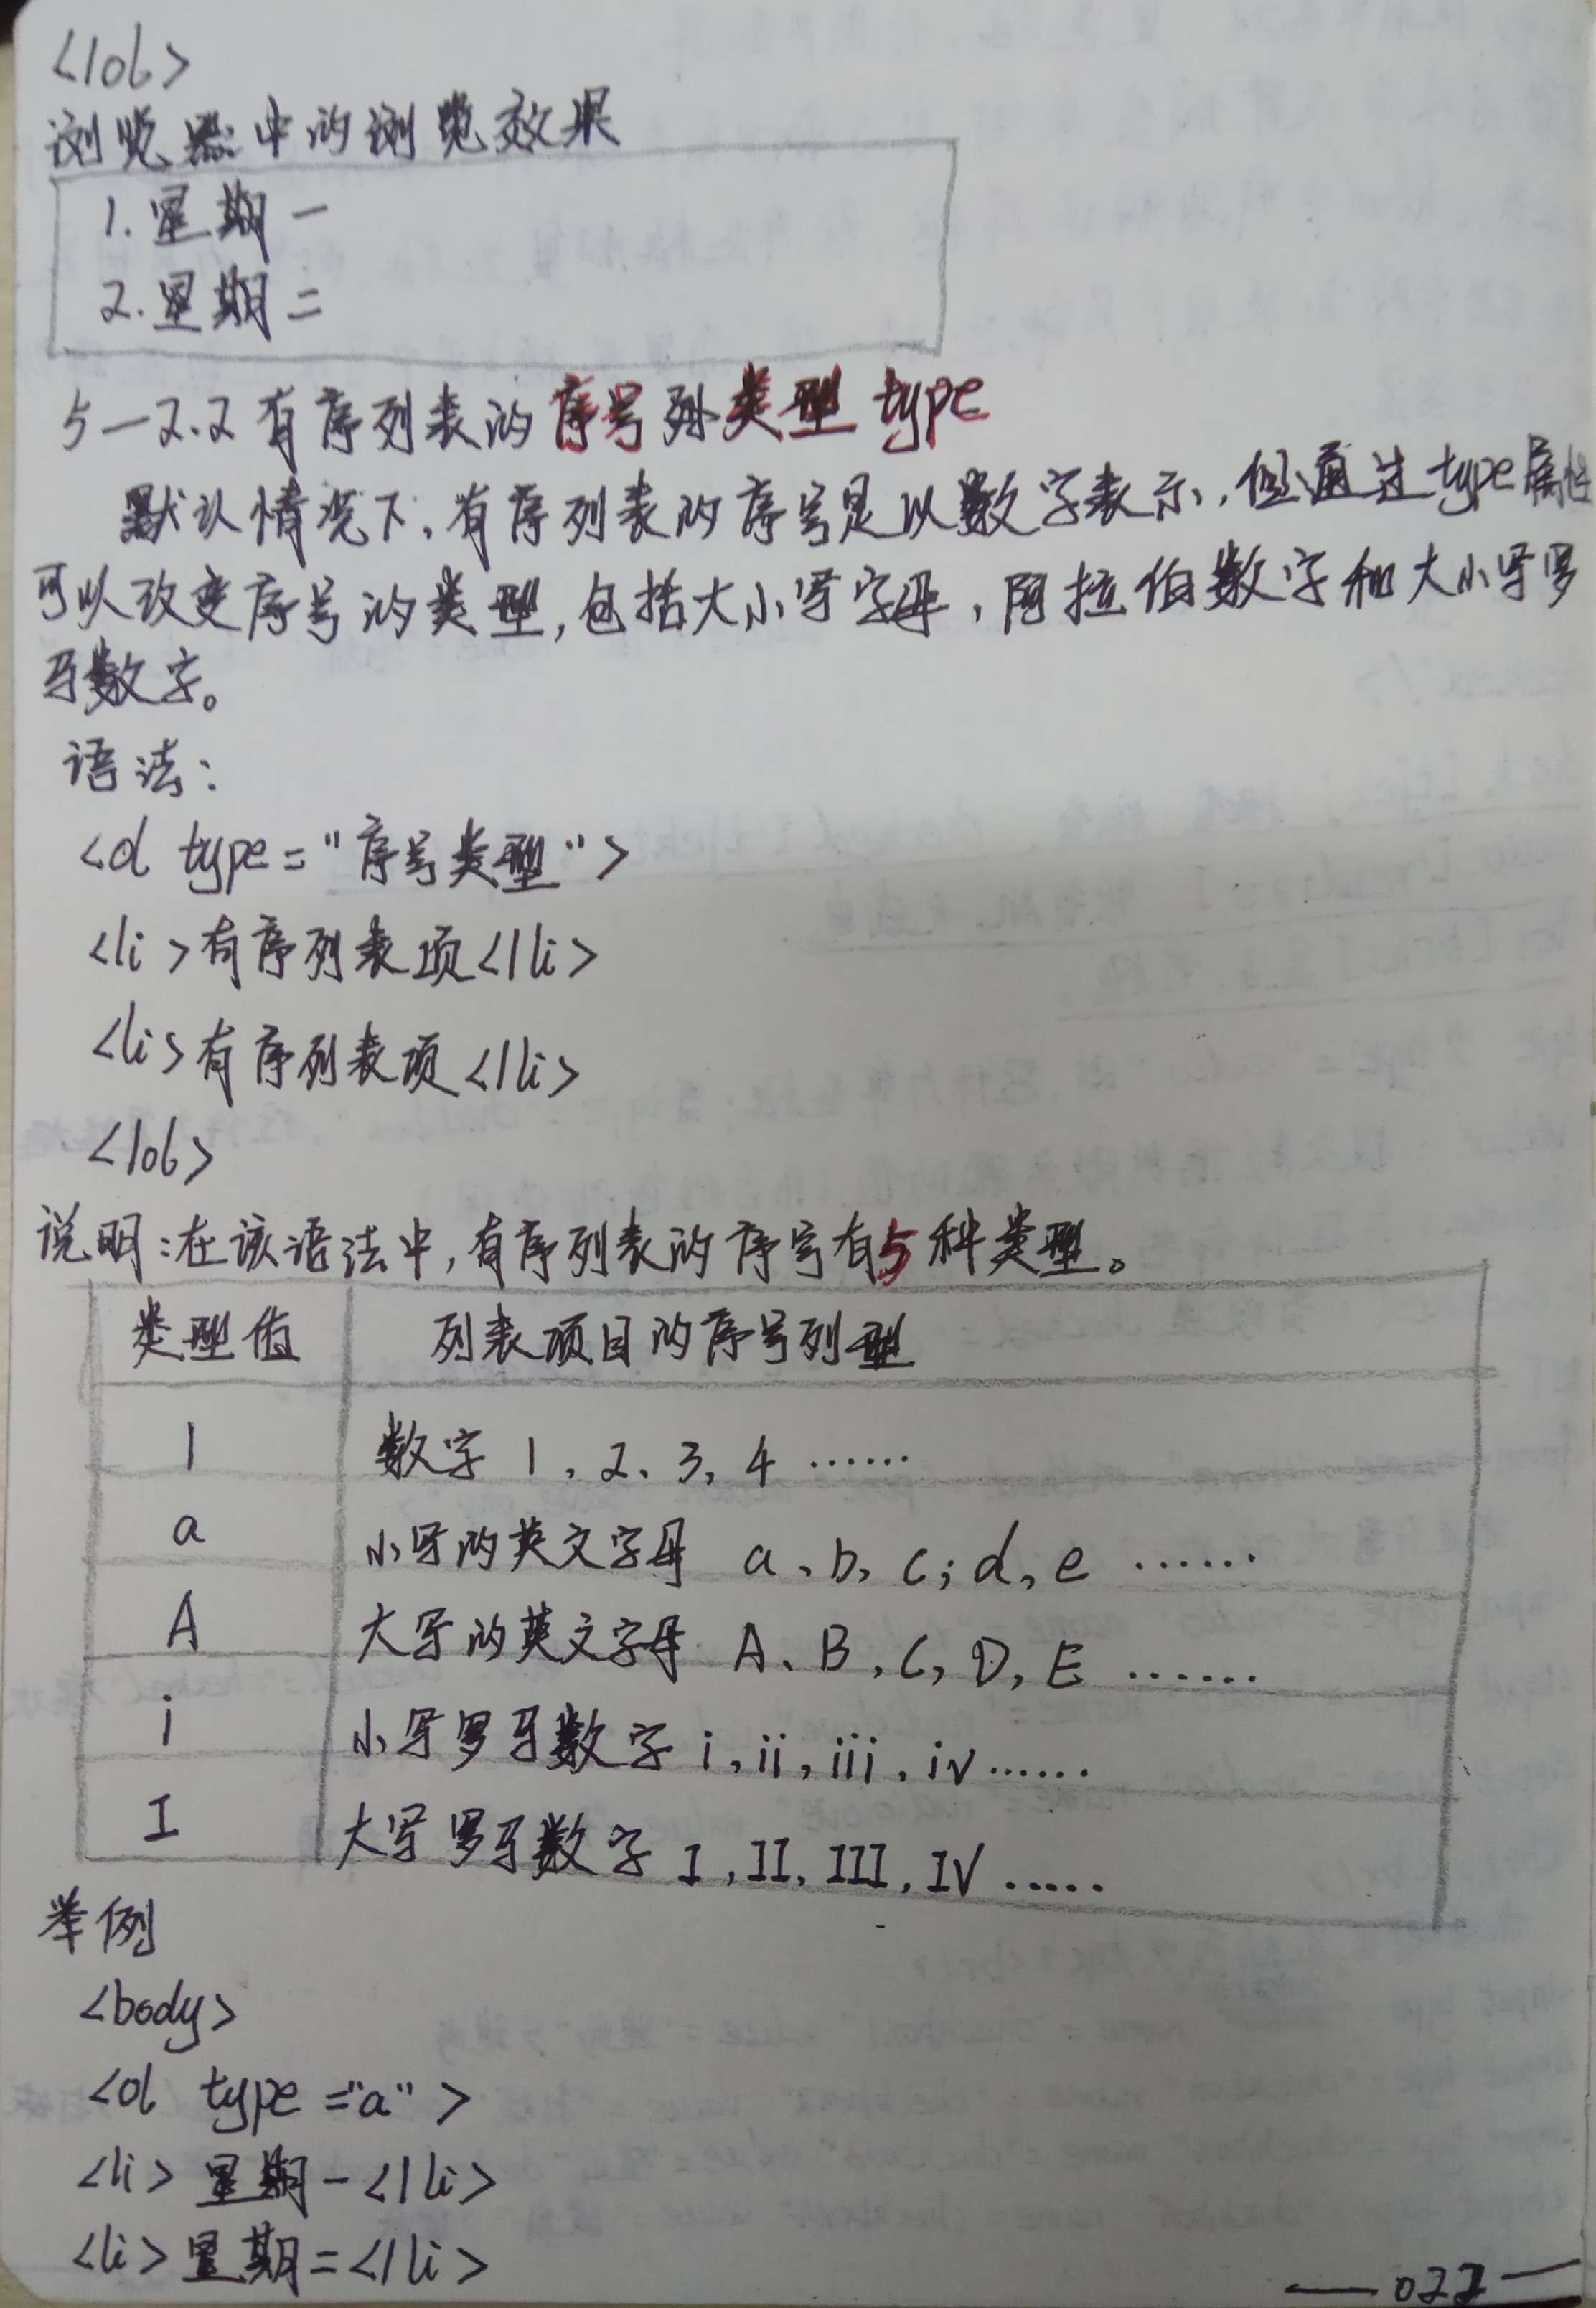 </ol>
浏览器中的浏览效果
1. 星期一
2. 星期二
5-2.2 有序列表的序号列类型 type
默认情况下,有序列表的序号是以数字表示,但通过type属性
可以改变序号的类型,包括大小写字母,阿拉伯数字和大小写罗
马数字。
语法:
<ol type="序号类型">
<li>有序列表项</li>
<li>有序列表项</li>
</ol>
说明:在该语法中,有序列表的序号有5种类型。
类型值 列表项目的序号列型
1 数字 1、2、3、4 ……
a 小写的英文字母 a、b、c;d,e ……
A 大写的英文字母 A、B,C,D,E ……
i 小写罗马数字 i,ii,iii,iv……
I 大写罗马数字 I,II,III,IV ……
举例
<body>
<ol type="a">
<li>星期一</li>
<li>星期二</li>
—022—